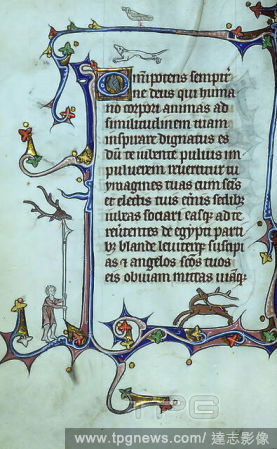 Omnipotens sempit
ne deus qui huma
no corpori animas ad
similitudinem tuam
inspirare dignatus es
dū te iubente pulvis in
pulverem revertitur tu
ymagines tuas cum sc̄is
et electis tuis et̄nis sedib;
iubeas sociari easq; ad te
revertentes de egypti parti
b; blande leviterq; suscipi
as et angelos sc̄os tuos
eis obviam mittas viāq;
TPG
www.tpgnews.com/ 達志影像